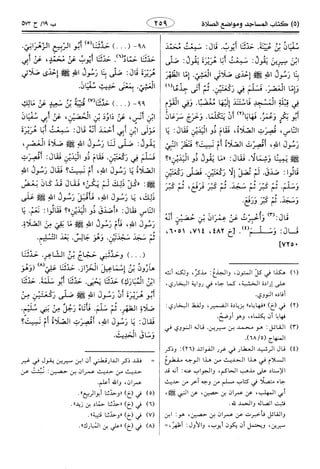 (٥) كتاب المساجد ومواضع الصلاة
٢٥٩
ب ١٩/ ح ٥٧٣
سُفْيَانُ بْنُ عُيَيْنَةَ. حَدَّثَنَا أَيُّوبُ. قَالَ: سَمِعْتُ مُحَمَّدَ
ابْنَ سِيرِينَ يَقُولُ: سَمِعْتُ أَبَا هُرَيْرَةَ يَقُولُ: صَلَّى
بِنَا رَسُولُ اللهِ ﷺ إِحْدَى صَلَاتَيِ الْعَشِيِّ. إِمَّا الظُّهْرَ
وَإِمَّا الْعَصْرَ. فَسَلَّمَ فِي رَكْعَتَيْنِ. ثُمَّ أَتَى جِذْعًا(١)
فِي قِبْلَةِ الْمَسْجِدِ فَاسْتَنَدَ إِلَيْهَا مُغْضَبًا. وَفِي الْقَوْمِ
أَبُو بَكْرٍ وَعُمَرُ. فَهَابَا(٢) أَنْ يَتَكَلَّمَا. وَخَرَجَ سَرَعَانُ
النَّاسِ. قُصِرَتِ الصَّلَاةُ. فَقَامَ ذُو الْيَدَيْنِ فَقَالَ: يَا
رَسُولَ اللهِ أَقُصِرَتِ الصَّلَاةُ أَمْ نَسِيتَ؟ فَنَظَرَ النَّبِيُّ ﷺ
يَمِينًا وَشِمَالًا. فَقَالَ: «مَا يَقُولُ ذُو الْيَدَيْنِ؟»
قَالُوا: صَدَقَ. لَمْ تُصَلِّ إِلَّا رَكْعَتَيْنِ. فَصَلَّى رَكْعَتَيْنِ
وَسَلَّمَ. ثُمَّ كَبَّرَ ثُمَّ سَجَدَ. ثُمَّ كَبَّرَ فَرَفَعَ. ثُمَّ كَبَّرَ
وَسَجَدَ. ثُمَّ كَبَّرَ وَرَفَعَ.
قَالَ(٣): وَأُخْبِرْتُ عَنْ عِمْرَانَ بْنِ حُصَيْنٍ أَنَّهُ
قَالَ: وَسَلَّمَ(٤). [خ ٤٨٢، ٧١٤، ٦٠٥١،
٧٢٥٠]
٩٨- (...) حَدَّثَنَا(٥) أَبُو الرَّبِيعِ الزَّهْرَانِيُّ.
حَدَّثَنَا حَمَّادٌ(٦). حَدَّثَنَا أَيُّوبُ عَنْ مُحَمَّدٍ، عَنْ أَبِي
هُرَيْرَةَ قَالَ: صَلَّى بِنَا رَسُولُ اللهِ ﷺ إِحْدَى صَلَاتَيِ
الْعَشِيِّ. بِمَعْنَى حَدِيثِ سُفْيَانَ.
٩٩- (...) حَدَّثَنَا(٧) قُتَيْبَةُ بْنُ سَعِيدٍ عَنْ مَالِكِ
ابْنِ أَنَسٍ، عَنْ دَاوُدَ بْنِ الْحُصَيْنِ، عَنْ أَبِي سُفْيَانَ
مَوْلَى ابْنِ أَبِي أَحْمَدَ أَنَّهُ قَالَ: سَمِعْتُ أَبَا هُرَيْرَةَ
يَقُولُ: صَلَّى لَنَا رَسُولُ اللهِ ﷺ صَلَاةَ الْعَصْرِ،
فَسَلَّمَ فِي رَكْعَتَيْنِ. فَقَامَ ذُو الْيَدَيْنِ فَقَالَ: أَقُصِرَتِ
الصَّلَاةُ يَا رَسُولَ اللهِ أَمْ نَسِيتَ؟ فَقَالَ رَسُولُ اللهِ
ﷺ: «كُلُّ ذَلِكَ لَمْ يَكُنْ» فَقَالَ: قَدْ كَانَ بَعْضُ
ذَلِكَ، يَا رَسُولَ اللهِ. فَأَقْبَلَ رَسُولُ اللهِ ﷺ عَلَى
النَّاسِ فَقَالَ: «أَصَدَقَ ذُو الْيَدَيْنِ؟» فَقَالُوا: نَعَمْ. يَا
رَسُولَ اللهِ. فَأَتَمَّ رَسُولُ اللهِ ﷺ مَا بَقِيَ مِنَ الصَّلَاةِ.
ثُمَّ سَجَدَ سَجْدَتَيْنِ. وَهُوَ جَالِسٌ. بَعْدَ التَّسْلِيمِ.
(...) وَحَدَّثَنِي حَجَّاجُ بْنُ الشَّاعِرِ. حَدَّثَنَا
هَارُونُ بْنُ إِسْمَاعِيلَ الْخَزَّازُ. حَدَّثَنَا عَلِيٌّ(٨) (وَهُوَ
ابْنُ الْمُبَارَكِ) حَدَّثَنَا يَحْيَى. حَدَّثَنَا أَبُو سَلَمَةَ. حَدَّثَنَا
أَبُو هُرَيْرَةَ أَنَّ رَسُولَ اللهِ ﷺ صَلَّى رَكْعَتَيْنِ مِنْ
صَلَاةِ الظُّهْرِ. ثُمَّ سَلَّمَ. فَأَتَاهُ رَجُلٌ مِنْ بَنِي سُلَيْمٍ.
فَقَالَ: يَا رَسُولَ اللهِ، أَقُصِرَتِ الصَّلَاةُ أَمْ نَسِيتَ؟
وَسَاقَ الْحَدِيثَ.
(١) هكذا في كل المتون، والجذع مذكر، ولكنه أنثه
على إرادة الخشبة، كما جاء في رواية البخاري،
أفاده النووي.
(٢) في (خ) «فهاباه» بزيادة الضمير، ولفظ البخاري:
فهابا أن يكلماه، وهو أوضح.
(٣) القائل: هو محمد بن سيرين، قاله النووي في
المنهاج (٦٨/٥).
(٤) قال الرشيد العطار في غرر الفوائد : وذكر
السلام في هذا الحديث من هذا الوجه مقطوع
الإسناد على مذهب الحاكم، والجواب عنه: أنه قد
جاء متصلًا في كتاب مسلم من وجه آخر من حديث
أبي المهلب، عن عمران بن حصين، عن النبي ﷺ،
فثبت اتصاله والحمد لله.
والقائل فأخبرت عن عمران بن حصين، هو: ابن
سيرين، ويحتمل أن يكون أيوب، والأول: أظهر،=
= فقد ذكر الدارقطني أن ابن سيرين يقول في غير
حديث من حديث عمران بن حصين: نُبِّئت عن
عمران، والله أعلم.
(٥) في (خ) «وحدثنا أبو الربيع».
(٦) في (خ) «حدثنا حماد بن زيد».
(٧) في (خ) «وحدثنا قتيبة».
(٨) في (خ) «علي بن المبارك».